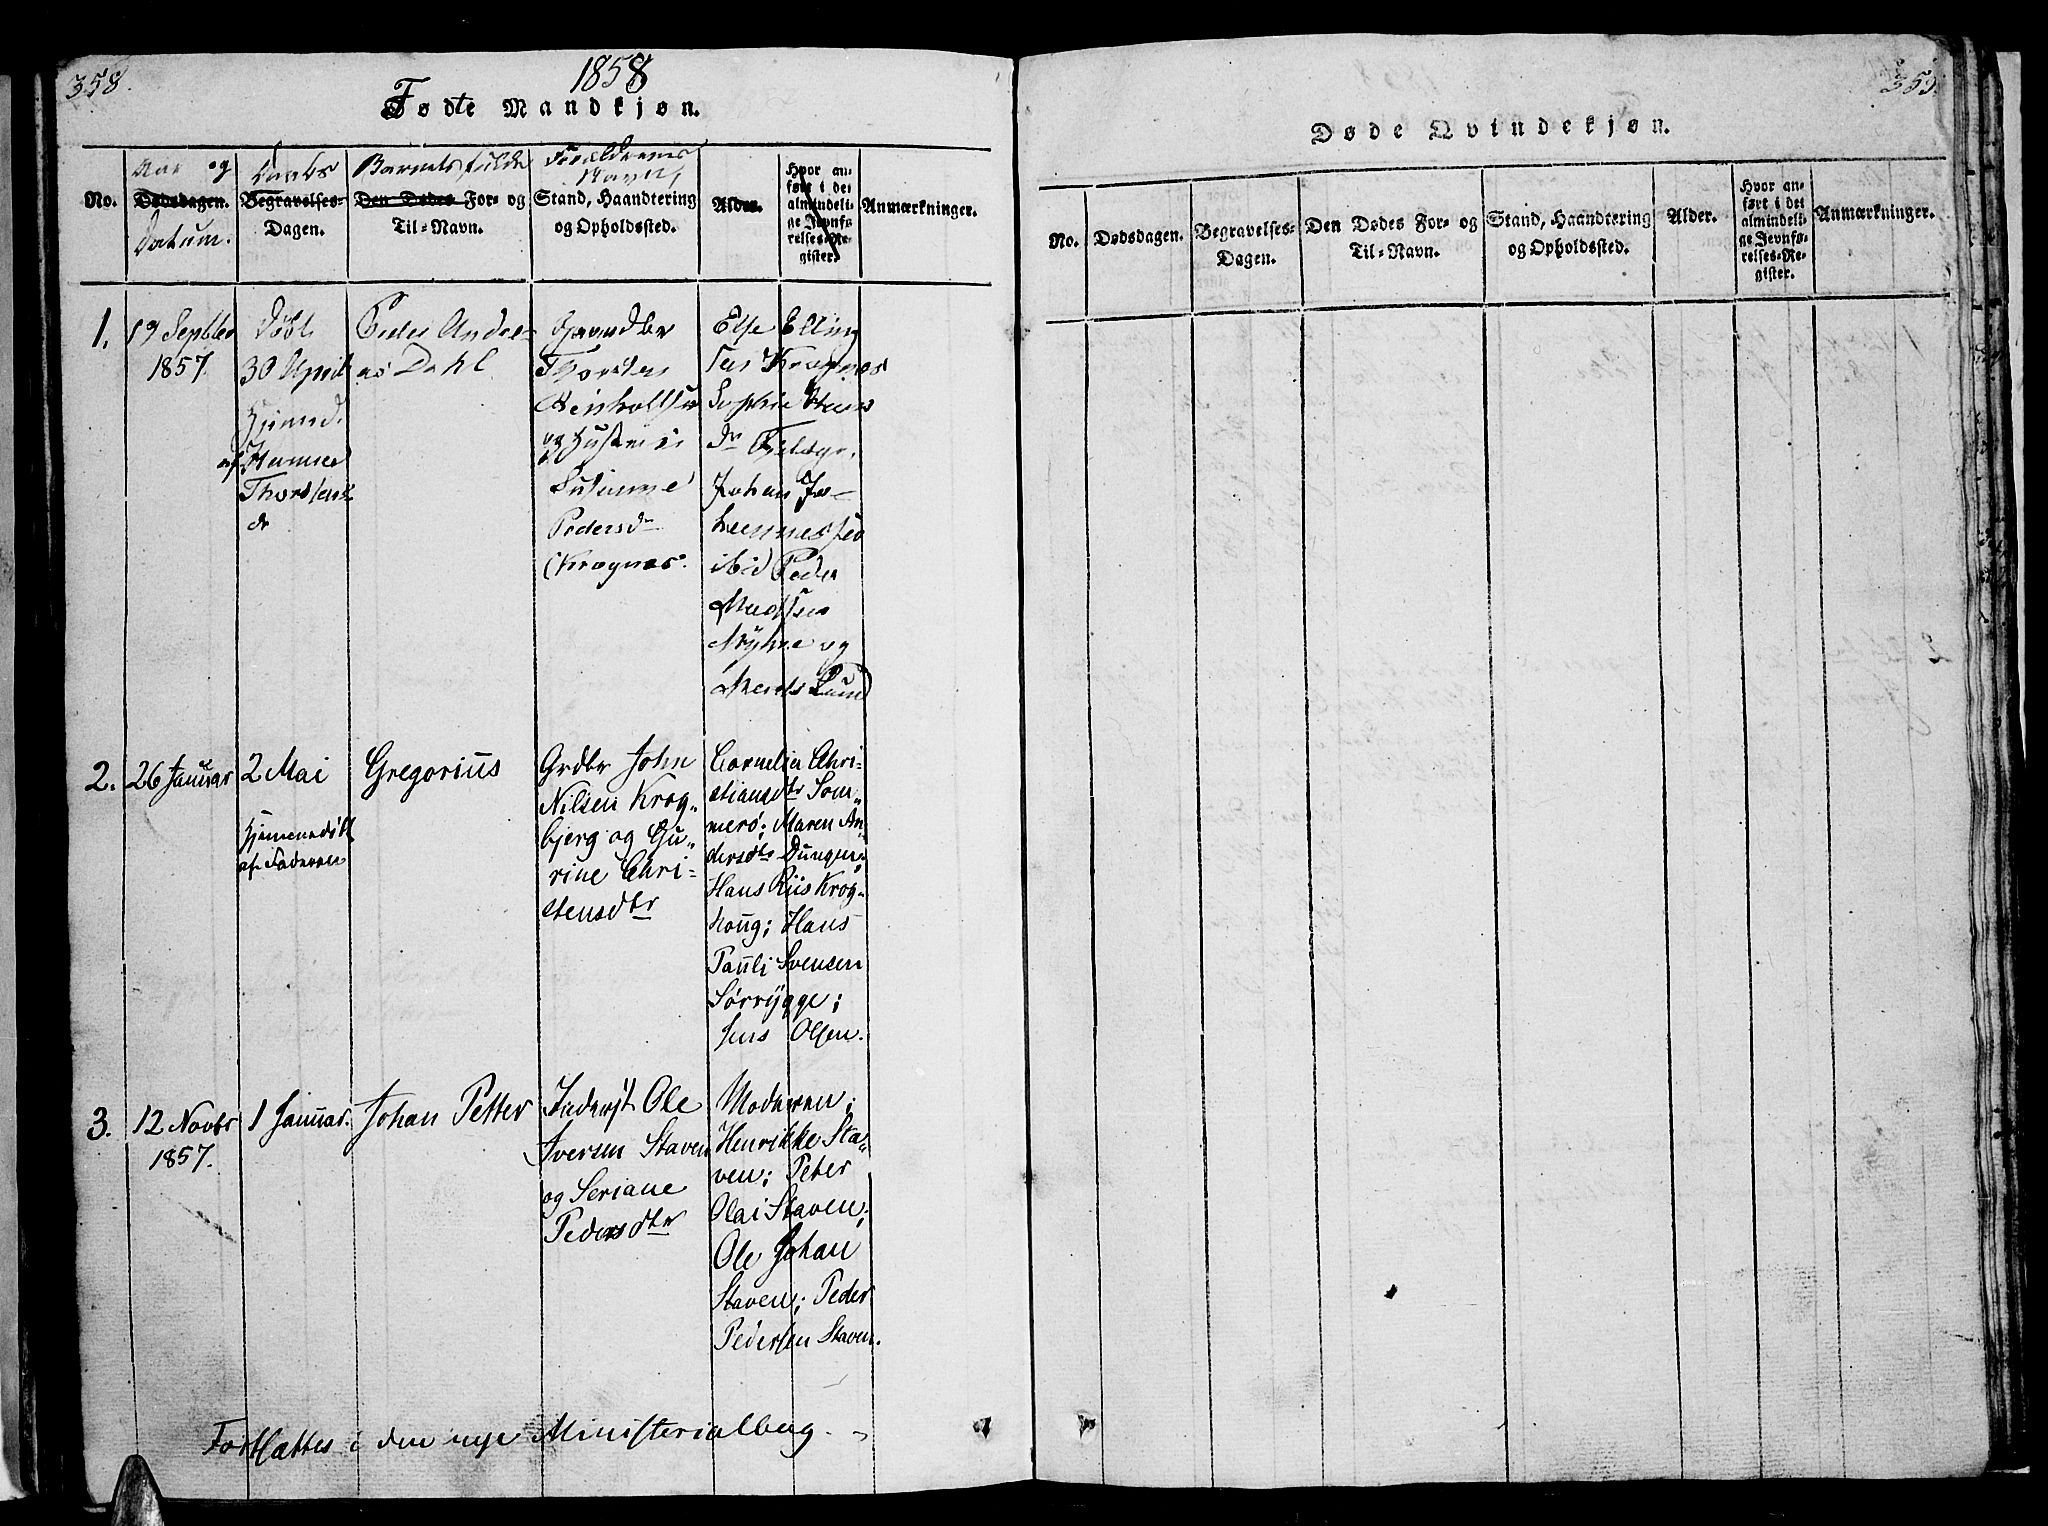 358.
1858
Fødte Mandkjøn.
No.
Aar og
Dødsdagen.
Datum.
Daabs
Begravelses-
Dagen.
Barnets fulde
Den Dødes For- og
Til-Navn.
Forældrenes
Navn,
Stand, Haandtering
og Opholdssted.
Alder.
Hvor an-
ført i det
almindeli-
ge Jevnfø-
relses-Re-
gister.
Anmærkninger.
1.
19 Septbr
1857
Døbt
30 April
Hjemmed.
af
Thorstens
dr
Peder Andre-
as Dahl
Gaardbr
Thorsten
Reinholtsen
og Hustru
Susanne
Pedersdr
Krognes.
Else Elling
sen Krognes
Sophie Hans
dr
Johan Jo-
hannessen
ibid Peder
Madssen
Myhre og
Lund
2.
26 Januar
2 Mai
Hjemmedøbt
af Faderen
Gregorius
Grdbr John
Nilsen Krog„
bjerg og Gu„
rine Chri-
stensdtr
Cornelia Chri-
stiansdtr Som„
merø; Maren An
dersdtr
Hans Riis Krog„
houg; Hans
Pauli Svensen
Sørrygge;
Jens Olsen.
3.
12 Novbr
1857.
1 Januar.
Johan Petter
Inderst Ole
Iversen Staven
og Seriane
Pedersdtr
Moderen;
Henrikke Sta„
ven; Peter
Olai Staven;
Ole Johan
Staven; Peder
Pedersen Staven.
Fortsættes i den nye Ministerialbog.
359.
Døde Qvindekjøn.
No.
Dødsdagen.
Begravelses-
Dagen.
Den Dødes For- og
Til-Navn.
Stand, Haandtering
og Opholdssted.
Alder.
Hvor an-
ført i det
almindeli-
ge Jevnfø-
relses-Re-
gister.
Anmærkninger.